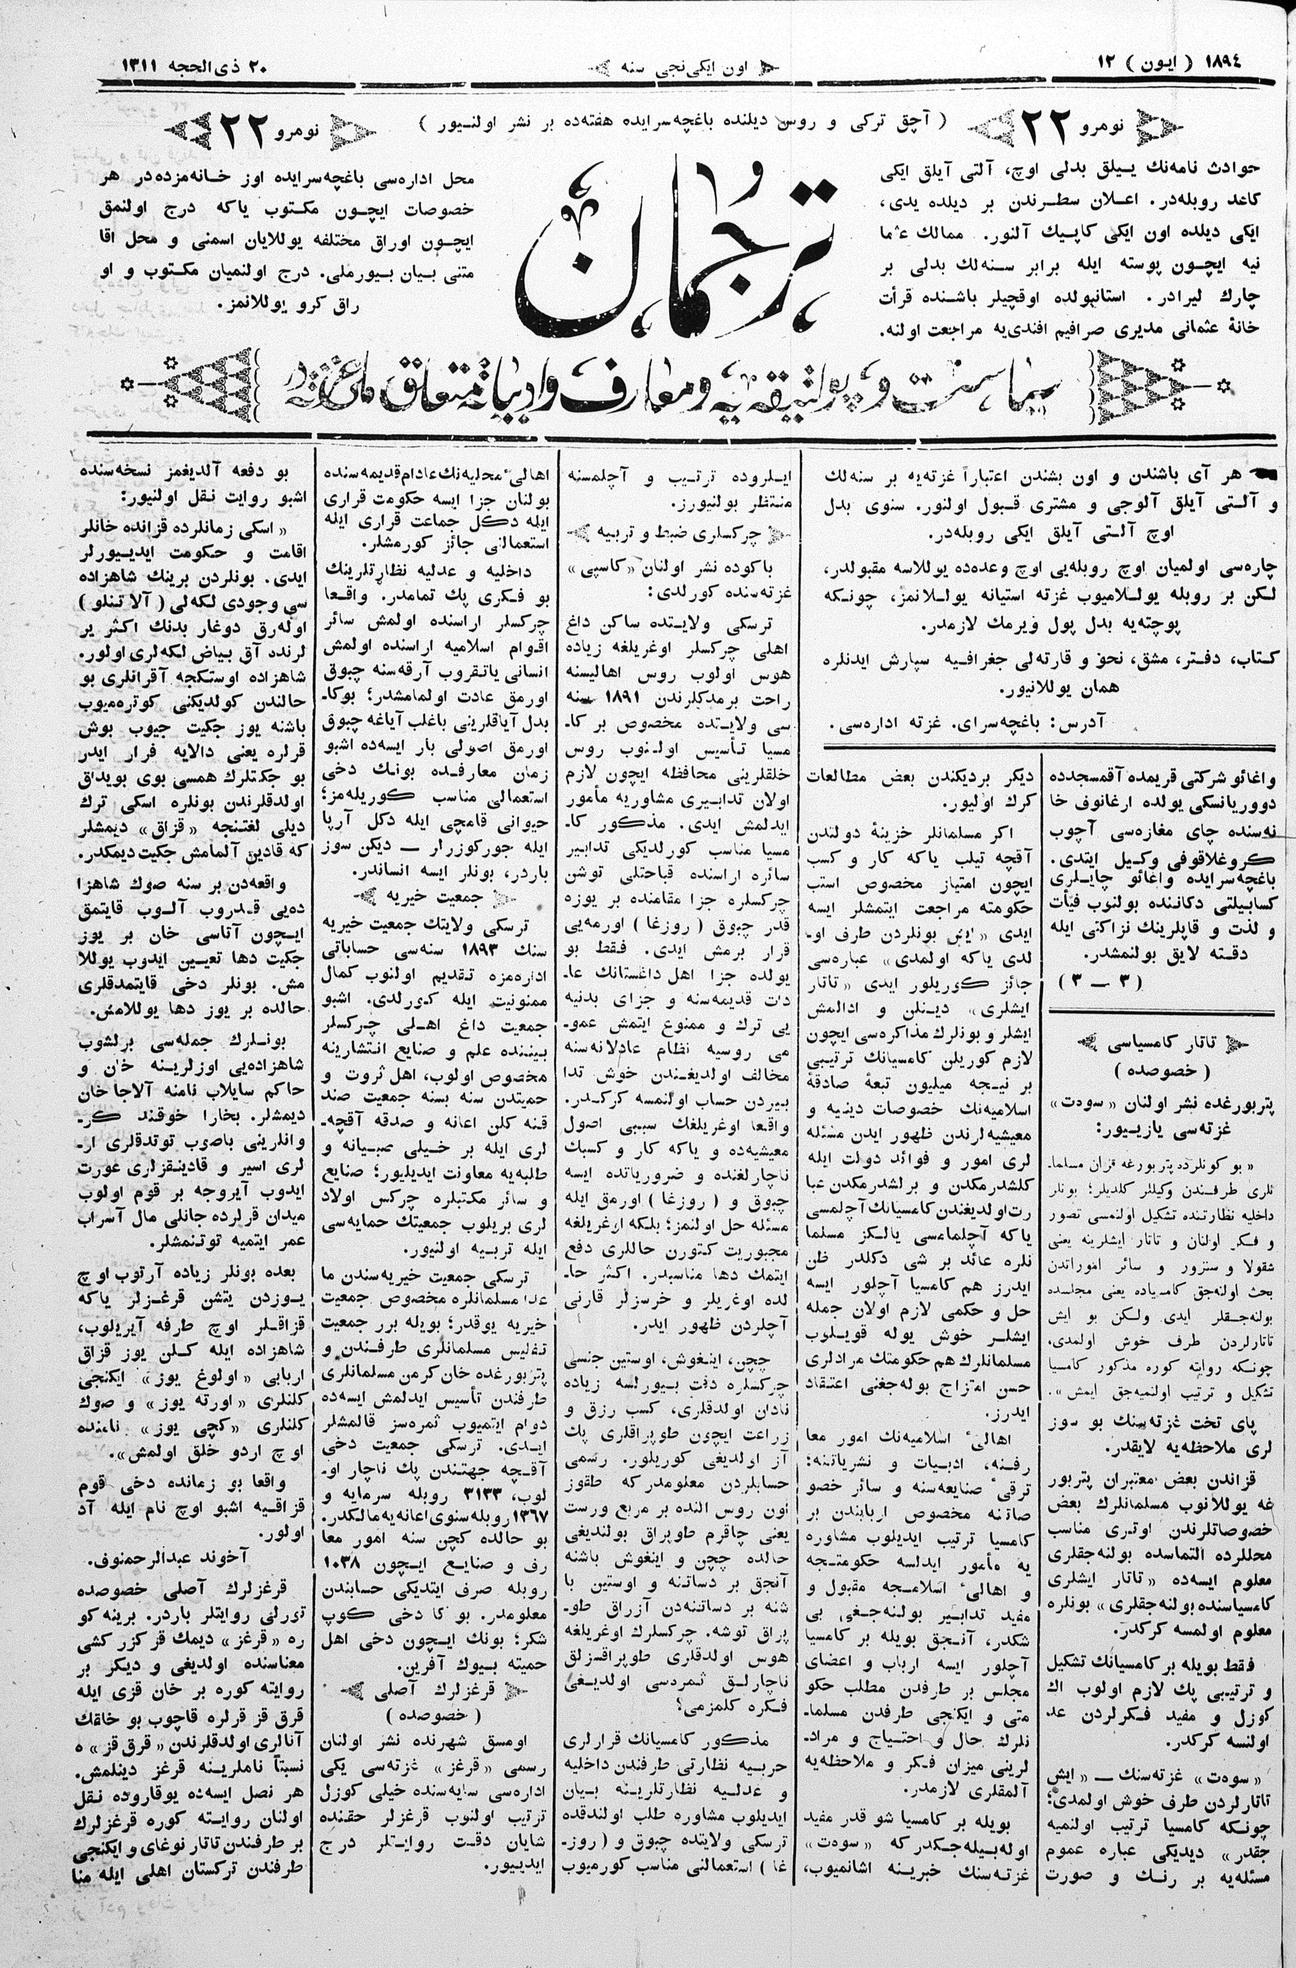 ١٨٩٤ ( ایون ) ١٢
اون ایکی‌نجی سنه
٢٠ ذی الحجه ١٣١١
نومرو ٢٢
( آچق ترکی و روس دیلنده باغچه‌سرایده هفته‌ده بر نشر اولنیور )
نومرو ٢٢
حوادث نامه‌نك ییلق بدلی اوچ، آلتی آیلق ایکی
کاغد روبله‌در. اعلان سطرندن بر دیلده یدی،
ایکی دیلده اون ایکی کاپیك آلنور. ممالك عثما
نیه ایچون پوسته ایله برابر سنه‌لك بدلی بر
چارك لیرادر. استانبولده اوقچیلر باشنده قرأت
خانهٔ عثمانی مدیری صرافیم افندی‌یه مراجعت اولنه.
ترجمان
محل اداره‌سی باغچه‌سرایده اوز خانه‌مزده‌در هر
خصوصات ایچون مکتوب یاکه درج اولنمق
ایچون اوراق مختلفه یوللایان اسمنی و محل اقا
متنی بیان بیورملی. درج اولنمیان مکتوب و او
راق کرو یوللانمز.
سیاست و پولتیقه‌یه و معارف و ادبیاته متعلق ملی غزته‌در
هر آی باشندن و اون بشندن اعتباراً غزته‌یه بر سنه‌لك
و آلتی آیلق آلوجی و مشتری قبول اولنور. سنوی بدل
اوچ آلتی آیلق ایکی روبله‌در.
چاره‌سی اولمیان اوچ روبله‌یی اوچ وعده‌ده یوللاسه مقبولدر،
لکن بر روبله یوللامیوب غزته استیانه یوللانمز، چونکه
پوچته‌یه بدل پول ویرمك لازمدر.
کتاب، دفتر، مشق، نحو و قارته‌لی جغرافیه سپارش ایدنلره
همان یوللانیور.
آدرس: باغچه‌سرای. غزته اداره‌سی.
واغائو شرکتی قریمده آقمسجدده
دووریانسکی یولده ارغانوف خا
نه‌سنده چای مغازه‌سی آچوب
کروغلاقوفی وکیل ایتدی.
باغچه‌سرایده واغائو چایلری
کسابیلتی دکاننده بولنوب فیأت
و لذت و قاپلرینك نزاکتی ایله
دقته لایق بولنمشدر.
( ٣ — ٣ )
تاتار کامسیاسی
( خصوصده )
پتربورغده نشر اولنان «سوه‌ت»
غزته‌سی یازیور:
«بو کونلرده پتربورغه قزان مسلما‌
نلری طرفندن وکیللر کلدیلر؛ بونلر
داخلیه نظارتنده تشکیل اولنمسی تصور
و فکر اولنان و تاتار ایشلرینه یعنی
شقولا و سنزور و سائر اموراتدن
بحث اوله‌جق کامسیاده یعنی مجلسده
بوله‌جقلر ایدی ولکن بو ایش
تاتارلردن طرف خوش اولمدی،
چونکه روایته کوره مذکور کامسیا
تشکیل و ترتیب اولنمیه‌جق ایمش».
پای تخت غزته‌سنك بو سوز
لری ملاحظه‌یه لایقدر.
قزاندن بعض معتبران پتربور
غه یوللانوب مسلمانلرك بعض
خصوصاتلرندن اوتری مناسب
محللرده التماسده بوله‌جقلری
معلوم ایسه‌ده «تاتار ایشلری
کامسیاسنده بوله‌جقلری» بونلره
معلوم اولمسه کرکدر.
فقط بویله بر کامسیانك تشکیل
و ترتیبی پك لازم اولوب اك
کوزل و مفید فکرلردن عد
اولنسه کرکدر.
«سوه‌ت» غزته‌سنك — «ایش
تاتارلردن طرف خوش اولمدی؛
چونکه کامسیا ترتیب اولنمیه
جقدر» دیدیکی عباره عموم
مسئله‌یه بر رنك و صورت
دیکر بردیکندن بعض مطالعات
کرك اولیور.
اکر مسلمانلر خزینهٔ دولتدن
آقچه تیلب یاکه کار و کسب
ایچون امتیاز مخصوص استب
حکومته مراجعت ایتمشلر ایسه
ایدی «ایش بونلردن طرف او‌
لدی یاکه اولمدی» عباره‌سی
جائز کوریلور ایدی «تاتار
ایشلری» دینلن و ادالمش
ایشلر و بونلرك مذاکره‌سی ایچون
لازم کوریلن کامسیانك ترتیبی
بر نیجه میلیون تبعهٔ صادقهٔ
اسلامیه‌نك خصوصات دینیه و
معیشیه‌لرندن ظهور ایدن مسئله
لری امور و فوائد دولت ایله
کلشدرمکدن و برلشدرمکدن عبا
رت اولدیغندن کامسیانك آچلمسی
یاکه آچلمامسی یالکز مسلما
نلره عائد بر شی دکلدر ظن
ایدرز هم کامسیا آچلور ایسه
حل و حکمی لازم اولان جمله
ایشلر خوش یوله قویلوب
مسلمانلرك هم حکومتك مرادلری
حسن امتزاج بوله‌جغنی اعتقاد
ایدرز.
اهالیٔ اسلامیه‌نك امور معا
رفنه، ادبیات و نشریاتنه؛
ترقیٔ صنایعه‌سنه و سائر خصو
صاتنه مخصوص اربابندن بر
کامسیا ترتیب ایدیلوب مشاوره
یه مأمور ایدلسه حکومتجه
و اهالیٔ اسلامجه مقبول و
مفید تدابیر بولنه‌جغی بی
شکدر، آنجق بویله بر کامسیا
آچلور ایسه ارباب و اعضای
مجلس بر طرفدن مطلب حکو
متی و ایکنجی طرفدن مسلما‌
نلرك حال و احتیاج و مراد‌
لرینی میزان فکر و ملاحظه‌یه
آلمقلری لازمدر.
بویله بر کامسیا شو قدر مفید
اوله‌بیله‌جکدر که «سوه‌ت»
غزته‌سنك خبرینه اشانمیوب،
ایلروده ترتیب و آچلمسنه
منتظر بولنیورز.
چرکسلری ضبط و تربیه
باکوده نشر اولنان «کاسپی»
غزته‌سنده کورلدی:
ترسکی ولایتده ساکن داغ
اهلی چرکسلر اوغریلغه زیاده
هوس اولوب روس اهالیسنه
راحت برمدکلرندن ١٨٩١ سنه
سی ولایتده مخصوص بر کا‌
مسیا تأسیس اولنوب روس
خلقلرینی محافظه ایچون لازم
اولان تدابیری مشاوریه مأمور
ایدلمش ایدی. مذکور کا‌
مسیا مناسب کورلدیکی تدابیر
سائره اراسنده قباحتلی توشن
چرکسلره جزا مقامنده بر یوزه
قدر چبوق ( روزغا ) اورمه‌یی
قرار برمش ایدی. فقط بو
یولده جزا اهل داغستانك عا‌
دت قدیمه‌سنه و جزای بدنیه
یی ترك و ممنوع ایتمش عمو‌
می روسیه نظام عادلانه‌سنه
مخالف اولدیغندن خوش تدا
بیردن حساب اولنمسه کرکدر.
واقعا اوغریلغك سببی اصول
معیشیه‌ده و یاکه کار و کسبك
ناچارلغنده و ضروریاتده ایسه
چبوق و ( روزغا ) اورمق ایله
مسئله حل اولنمز؛ بلکه اوغریلغه
مجبوریت کتورن حاللری دفع
ایتمك دها مناسبدر. اکثر حا‌
لده اوغریلر و خرسزلر قارنی
آچلردن ظهور ایدر.
چچن، اینغوش، اوستین جنسی
چرکسلره دقت بیورلسه زیاده
نادان اولدقلری، کسب رزق و
زراعت ایچون طوپراقلری پك
آز اولدیغی کوریلور. رسمی
حسابلردن معلومدر که طقوز
اون روس النده بر مربع ورست
یعنی چاقرم طوپراق بولندیغی
حالده چچن و اینغوش باشنه
آنجق بر دساتنه و اوستین با
شنه بر دساتنه‌دن آزراق طو‌
پراق توشه. چرکسلرك اوغریلغه
هوس اولدقلری طوپراقسزلق
ناچارلق ثمردسی اولدیغی
فکره کلمزمی؟
مذکور کامسیانك قرارلری
حربیه نظارتی طرفندن داخلیه
و عدلیه نظارتلرینه بیان
ایدیلوب مشاوره طلب اولندقده
ترسکی ولایتده چبوق و ( روز‌
غا ) استعمالنی مناسب کورمیوب
اهالیٔ محلیه‌نك عادام قدیمه‌سنده
بولنان جزا ایسه حکومت قراری
ایله دکل جماعت قراری ایله
استعمالنی جائز کورمشلر.
داخلیه و عدلیه نظارتلرینك
بو فکری پك تمامدر. واقعا
چرکسلر اراسنده اولمش سائر
اقوام اسلامیه اراسنده اولمش
انسانی یاتقروب آرقه‌سنه چبوق
اورمق عادت اولمامشدر؛ بوکا‌
بدل آیاقلرینی باغلب آیاغه چبوق
اورمق اصولی بار ایسه‌ده اشبو
زمان معارفده بونك دخی
استعمالی مناسب کوریله‌مز؛
حیوانی قامچی ایله دکل آرپا
ایله جورکوزرلر — دیکن سوز
باردر، بونلر ایسه انساندر.
جمعیت خیریه
ترسکی ولایتك جمعیت خیریه
سنك ١٨٩٣ سنه‌سی حساباتی
اداره‌مزه تقدیم اولنوب کمال
ممنونیت ایله کورلدی. اشبو
جمعیت داغ اهلی چرکسلر
بیننده علم و صنایع انتشارینه
مخصوص اولوب، اهل ثروت و
حمیتدن سنه بسنه جمعیت صند
قنه کلن اعانه و صدقه آقچه‌
لری ایله بر خیلی صبیانه و
طلبه‌یه معاونت ایدیلیور؛ صنایع
و سائر مکتبلره چرکس اولاد
لری بریلوب جمعیتك حمایه‌سی
ایله تربیه اولنیور.
ترسکی جمعیت خیریه سندن ما
عدا مسلمانلره مخصوص جمعیت
خیریه یوقدر؛ بویله برر جمعیت
تفلیس مسلمانلری طرفندن و
پتربورغده خان کرمن مسلمانلری
طرفندن تأسیس ایدلمش ایسه‌ده
دوام ایتمیوب ثمره‌سز قالمشلر
ایدی. ترسکی جمعیت دخی
آقچه جهتندن پك ناچار او‌
لوب، ٣١٣٣ روبله سرمایه و
١٣٦٧ روبله سنوی اعانه‌یه مالکدر.
بو حالده کچن سنه امور معا
رف و صنایع ایچون ١٠٣٨
روبله صرف ایتدیکی حسابندن
معلومدر. بوکا دخی کوپ
شکر؛ بونك ایچون دخی اهل
حمیته بیوك آفرین.
قرغزلرك آصلی
( خصوصده )
اومسق شهرنده نشر اولنان
رسمی «قرغز» غزته‌سی یکی
اداره‌سی سایه‌سنده خیلی کوزل
ترتیب اولنوب قرغزلر حقنده
شایان دقت روایتلر درج
ایدیور.
بو دفعه آلدیغمز نسخه‌سنده
اشبو روایت نقل اولنیور:
«اسکی زمانلرده قزانده خانلر
اقامت و حکومت ایدیورلر
ایدی. بونلردن برینك شاهزاده
سی وجودی لکه‌لی ( آلا تنلو )
اوله‌رق دوغار بدنك اکثر یر
لرنده آق بیاض لکه‌لری اولور.
شاهزاده اوستکجه آقرانلری بو
حالندن کولدیکنی کوتره‌میوب
باشنه یوز جکیت جیوب بوش
قرلره یعنی دالایه فرار ایدر
بو جکتلرك همسی بوی بویداق
اولدقلرندن بونلره اسکی ترك
دیلی لغتنجه «قزاق» دیمشلر
که قادین آلمامش جکیت دیمکدر.
واقعه‌دن بر سنه صوك شاهزا
ده‌یی قدروب آلوب قایتمق
ایچون آتاسی خان بر یوز
جکیت دها تعیین ایدوب یوللا
مش. بونلر دخی قایتمدقلری
حالده بر یوز دها یوللامش.
بونلرك جمله‌سی برلشوب
شاهزاده‌یی اوزلرینه خان و
حاکم سایلاب نامنه آلاجا خان
دیمشلر. بخارا خوقند کر‌
وانلرینی باصوب توتدقلری ار‌
لری اسیر و قادینقزلری عورت
ایدوب آیروجه بر قوم اولوب
میدان قرلرده جانلی مال آسراب
عمر ایتمیه توتنمشلر.
بعده بونلر زیاده آرتوب اوچ
یوزدن یتشن قرغزلر یاکه
قزاقلر اوچ طرفه آیریلوب،
شاهزاده ایله کلن یوز قزاق
اربابی «اولوغ یوز» ایکنجی
کلنلری «اورته یوز» و صوك
کلنلری «کچی یوز» نامنده
اوچ اردو خلق اولمش».
واقعا بو زمانده دخی قوم
قزاقیه اشبو اوچ نام ایله آد
اولور.
آخوند عبدالرحمنوف.
قرغزلرك آصلی خصوصده
تورلی روایتلر باردر. برینه کو
ره «قرغز» دیمك قر کزر کشی
معناسنده اولدیغی و دیکر بر
روایته کوره بر خان قزی ایله
قرق قز قرلره قاچوب بو خلقك
آنالری اولدقلرندن «قرق قز» ه
نسبتاً ناملرینه قرغز دینلمش.
هر نصل ایسه‌ده یوقاروده نقل
اولنان روایته کوره قرغزلرك
بر طرفندن تاتار نوغای و ایکنجی
طرفندن ترکستان اهلی ایله منا